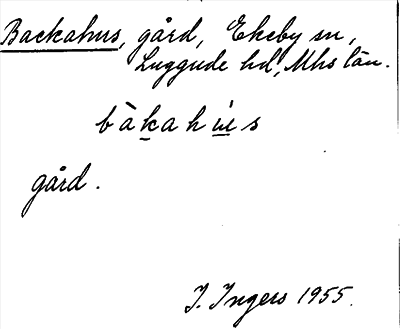 Backahus, gård, Ekeby sn,
Luggude hd, Mhs län.
bàkahùs
gård.
I. Ingers 1955.